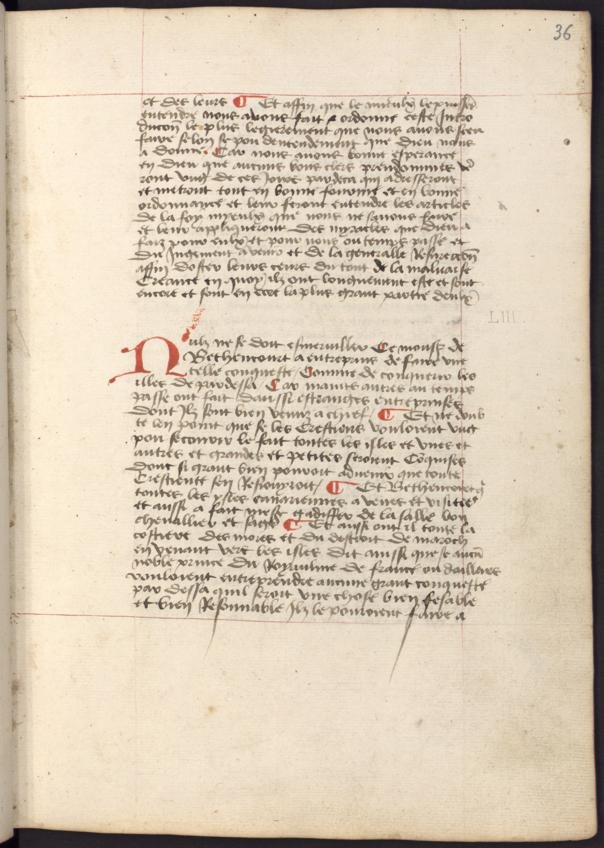 36
et des leurs ¶ Et affin que le mieulx le puissent
entendre nous avons fait et ordonne ceste intro
ducion le plus legierement que nous avons sceu
faire selon se pou dentendement que dieu nous
a donne. Car nous avons bonne esperance
en dieu que aucuns bons clers preudommes
vont ung de ces jours par deca qui adresseront
et metront tout en bonne fourme et en bonne
ordonnance et leur feront entendre les articles
de la foy mieulx que nous ne savons faire
et leur appliqueront des miracles que dieu a
faiz pour eulx et pour nous ou temps passe et
du jugement a venir et de la generalle Resurection
affin doster leurs ceurs du tout de la malvaise
Creance en quoy ilz ont longuement este et sont
encore et sont en ce la plus grant partie deulx
LIII
Nulz ne se doit esmerveillier Ce mons de
Bethencourt a entreprins de faire une
telle conqueste Comme de conquerir les
illes de par dessa Car maints autres au temps
passe ont fait daussi estranges entreprinses
dont ilz sont bien venuz a chief ¶ Et ne doub
te lon point que se les Crestiens vouloient ung
pou secourir le fait toutes les isles et unes et
autres et grandes et petites seroient Coquises
dont si grant bien pouroit advenir que toute
Crestiente sen Resioiroit ¶ Et Bethencourt qui
toutes les ysles canariennes a veues et visitees
et aussi a fait mess gadiffer de la salle bon
chevallier et saige ¶ Et aussi ont il toute la
costiere des mores et du destroit de maroch
en venant vers les isles dit aussi que se aucun
noble prince du Royaulme de france ou dailleurs
vouloient entreprendre aucune grant conqueste
par dessa quil seroit une chose bien fesable
et bien Resonnable Ilz le pouroient faire a